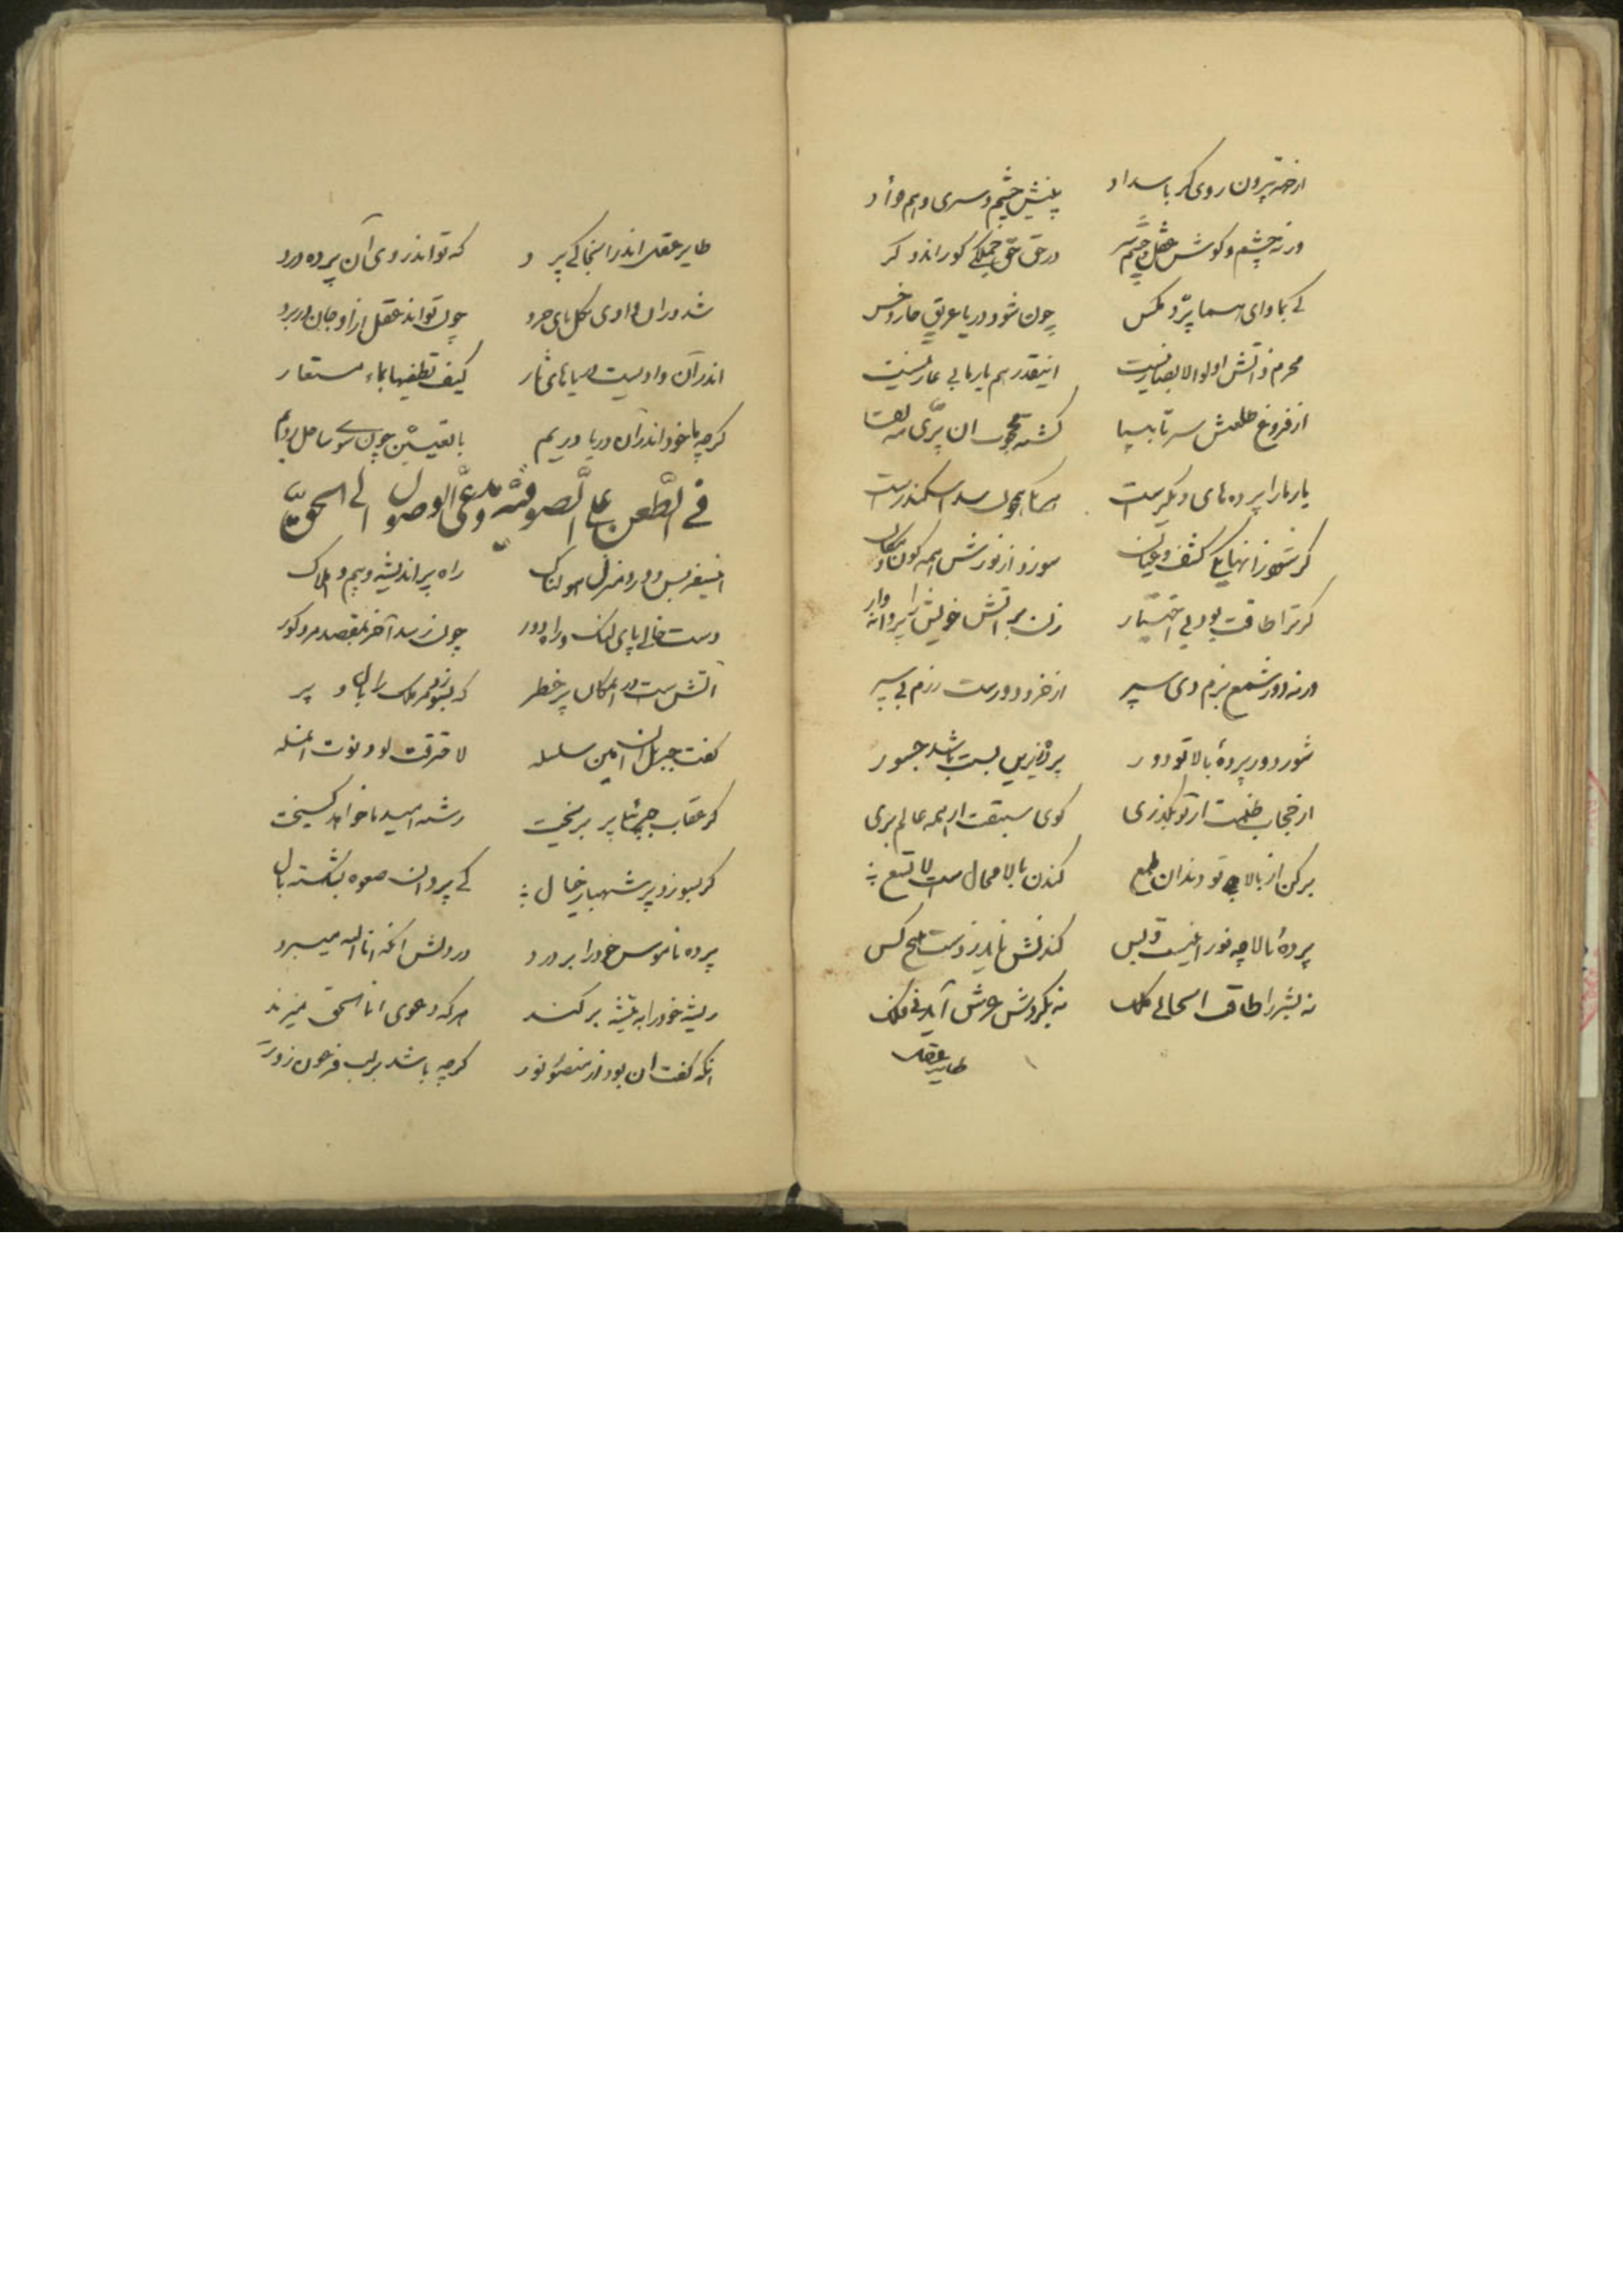 ورنه چشم و کوش عقل و چشم سر در حق حق جملکی کورند و کر
کی بماوای هما پرد مکس چون شود دریا غریق خار و خس
محرم ذاتش اولوالابصار نیست اینقدر هم یار ما بی عار نیست
از فروغ طلعتش سر تا بپا کشته محجوب ان پری لقا
یار ما را پرده های دیکرست سد اسکندرست
کر شود زانها یکی کشف و عیان سوزد از نورش همه کون و مکان
کر ترا طاقت بود بی اختیار زن بر آتش خویش را پروانه وار
ورنه دور شمع بزم وی سپر از خرد دورست رزم بی سپر
شور دور پردهٔ بالا تو دور باشد جسور
از حجاب ظلمت ار تو بکذری کوی سبقت از همه عالم بری
برکن از بالا تو دندان طمع کندن بالا محال ست
پردهٔ بالا چه نور اینست و بس کندنش ناید ز دست هیچ کس
نه بشر را طاقت انجا نی ملک نه بکردش عرش آید نی فلک
طایر عقل
طایر عقل اندر اینجا کی پرد که تواند روی آن پرده درد
شد دران وادی بکل پای خرد چون تواند عقل ازاو جان در برد
اندر آن وادیست دریاهای نار کیف تطفیها بماء مستعار
کرچه ما خود اندر آن دریا دریم بالیقین چون سوی ساحل بریم
فی الطعن علی الصوفیة و مدعی الوصول الی الحق
اینسفر بس دور و منزل هولناک راه پر اندیشه و بیم و هلاک
دست خالی پای لنک و راه دور چون رسد آخر بمقصد مرد کور
اتش ست در امکان پر خطر که بسوزد مر ملک را بال و پر
کفت جبریل ان امین سلسله لاحترقت لو دنوت انمله
کر عقاب چرخ را پر بریخت رشته امید ما خواهد کسیخت
کر بسوزد پر شهباز خیال کی پرد ان صعوه بشکسته بال
پرده ناموس خود را بر درد در دلش انکه انا الله میبرد
ریشه خود را به تیشه بر کند هر که دعوی انا الحق میزند
انکه کفت ان بود از منصور نور کرچه باشد بر لب فرعون زور